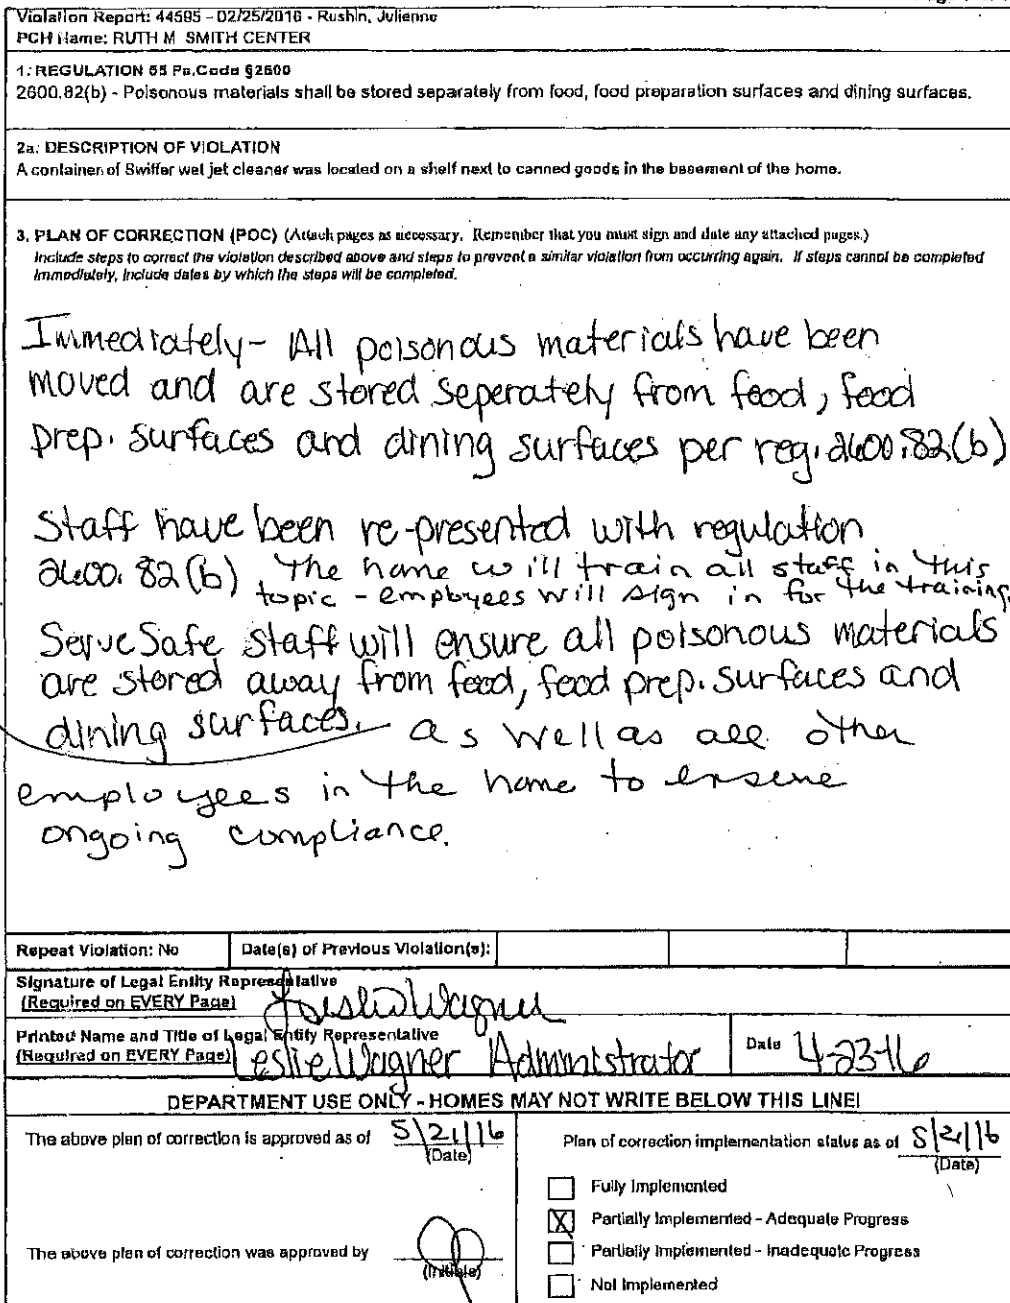 Violation Report: 44595 - 02/25/2016 - Rushin, Julienne
PCH Name: RUTH M SMITH CENTER
1: REGULATION 55 Pa.Code §2600
2600.82(b) - Poisonous materials shall be stored separately from food, food preparation surfaces and dining surfaces.
2a: DESCRIPTION OF VIOLATION
A container of Swiffer wet jet cleaner was located on a shelf next to canned goods in the basement of the home.
3. PLAN OF CORRECTION (POC) (Attach pages as necessary. Remember that you must sign and date any attached pages.)
Include steps to correct the violation described above and steps to prevent a similar violation from occurring again. If steps cannot be completed
immediately, include dates by which the steps will be completed.
Immediately - All poisonous materials have been
moved and are stored seperately from food, food
prep. surfaces and dining surfaces per reg. 2600.82(b)
Staff have been re-presented with regulation
2600.82(b), The home will train all staff in this
topic - employees will sign in for the training.
ServeSafe staff will ensure all poisonous materials
are stored away from food, food prep. surfaces and
dining surfaces. as well as all other
employees in the home to ensure
ongoing compliance.
Repeat Violation: No Date(s) of Previous Violation(s):
Signature of Legal Entity Representative
(Required on EVERY Page) Leslie Wagner
Printed Name and Title of Legal Entity Representative
(Required on EVERY Page) Leslie Wagner Administrator Date 4-23-16
DEPARTMENT USE ONLY - HOMES MAY NOT WRITE BELOW THIS LINE!
The above plan of correction is approved as of 5/21/16
(Date)
Plan of correction implementation status as of 5/21/16
(Date)
Fully Implemented
X Partially Implemented - Adequate Progress
Partially Implemented - Inadequate Progress
Not Implemented
The above plan of correction was approved by
(Initials)